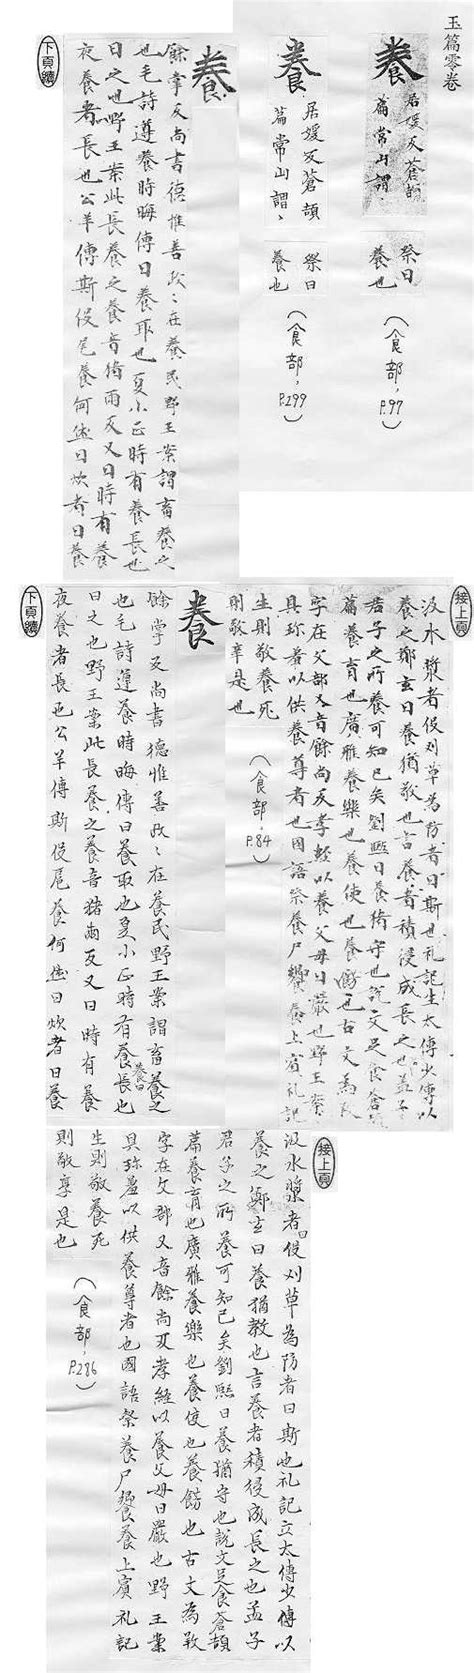 玉篇零卷
居媛反蒼頡
篇常山謂
祭曰
養也
(食部,P.97)
居媛反蒼頡
篇常山謂〻
祭曰
養也
(食部,P.299)
養
餘掌反尚書德惟善政〻在養民野王案謂畜養之
也毛詩遵養時晦傳曰養取也夏小正時有養長也
曰之也野王案此長養之養音猪雨反又曰時有養
夜養者長也公羊傳斯役扈養何休曰炊者曰養
下頁續
接上頁
汲水漿者曰役刈草為防者曰斯也礼記立太傅少傅以
養之鄭玄曰養猶教也言養者積浸成長之也孟子
君子之所養可知已矣劉熙曰養猶守也說文足食蒼頡
篇養育也廣雅養樂也養使也養餝也古文為㪟
字在父部又音餘尚反孝經以養父母曰嚴也野王案
具珎羞以供養尊者也國語祭養尸饗養上賓礼記
生則敬養死
則敬享是也
(食部,P.84)
養
餘掌反尚書德惟善政〻在養民野王案謂畜養之
也毛詩遵養時晦傳曰養取也夏小正時有養長也
曰之也野王案此長養之養音猪雨反又曰時有養
夜養者長也公羊傳斯役扈養何休曰炊者曰養
下頁續
接上頁
汲水漿者曰役刈草為防者曰斯也礼記立太傅少傅以
養之鄭玄曰養猶教也言養者積浸成長之也孟子
君子之所養可知已矣劉熙曰養猶守也說文足食蒼頡
篇養育也廣雅養樂也養使也養餝也古文為㪟
字在攵部又音餘尚反孝經以養父母曰嚴也野王案
具珎羞以供養尊者也國語祭養尸饗養上賓礼記
生則敬養死
則敬享是也
(食部,P.286)